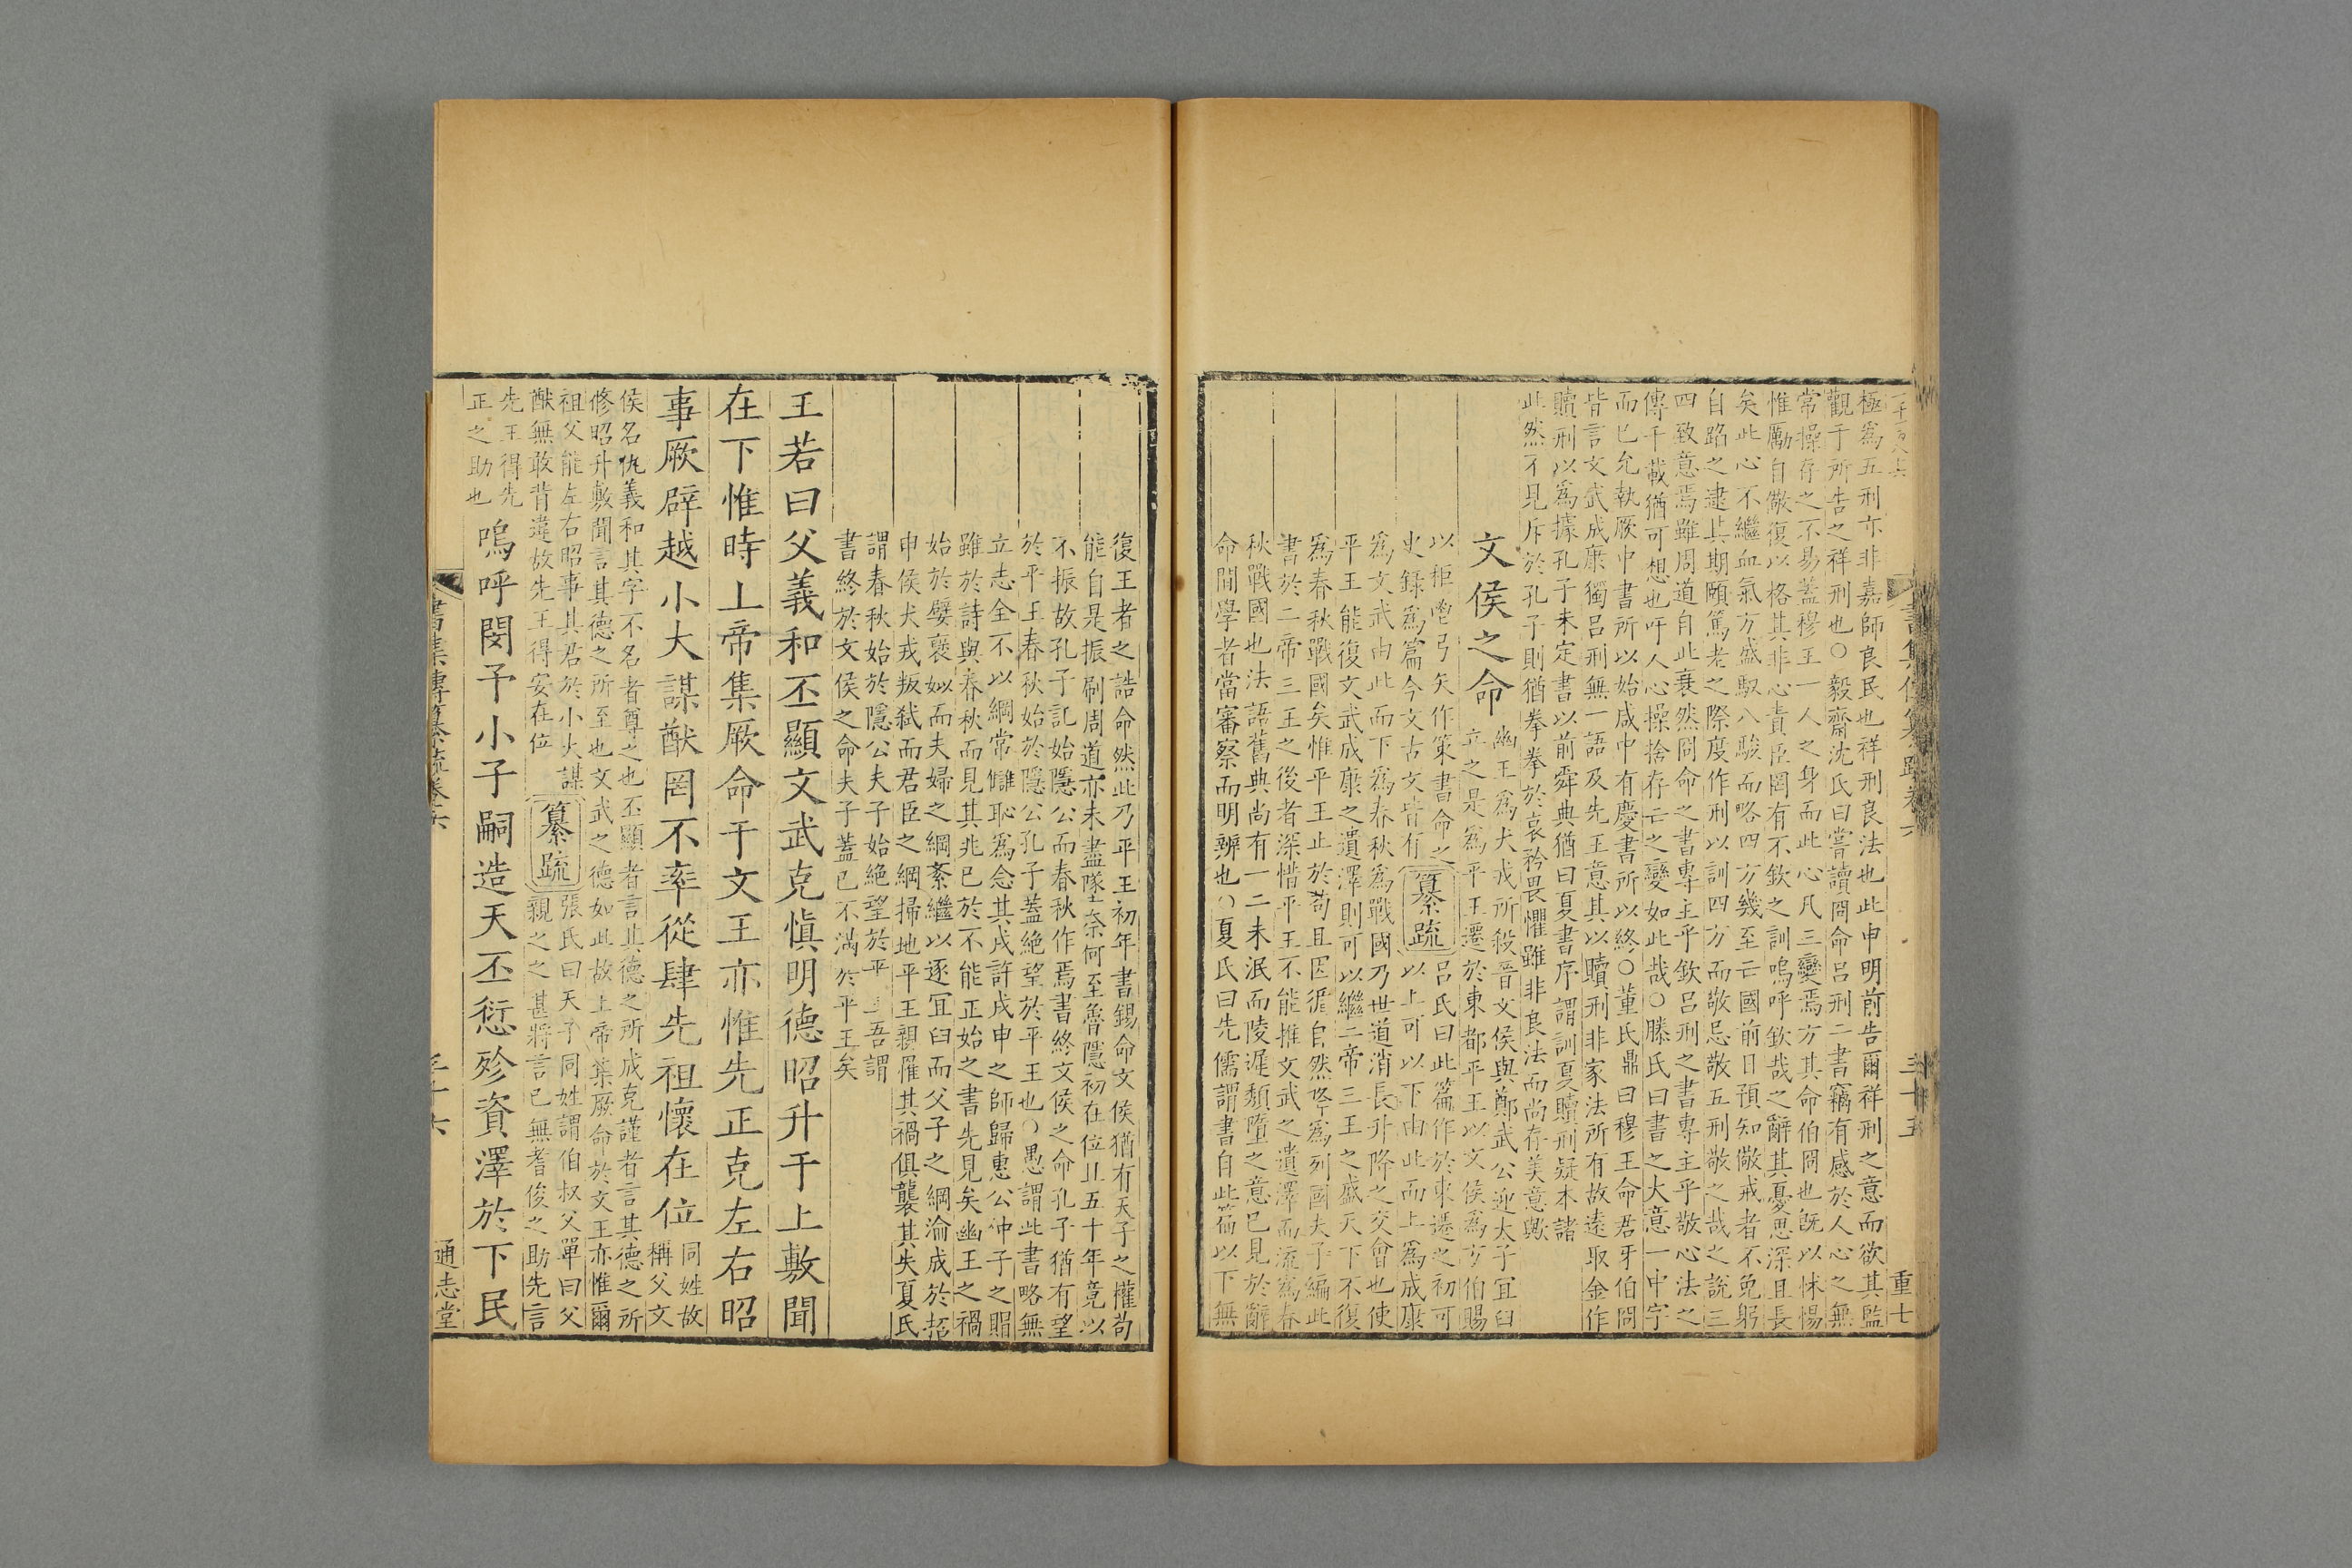 書集傳纂疏卷六
三十五
重七
極爲五刑亦非嘉師良民也祥刑良法也此申明前告爾祥刑之意而欲其監
觀于所告之祥刑也○毅齋沈氏曰嘗讀冏命呂刑二書竊有感於人心之無
常操存之不易蓋穆王一人之身而此心凡三變焉方其命伯冏也旣以怵惕
惟厲自儆復以格其非心責臣罔有不欽之訓嗚呼欽哉之辭其憂思深且長
矣此心不繼血氣方盛馭八駿而略四方幾至亡國前日預知儆戒者不免躬
自蹈之逮其期頤篤老之際度作刑以訓四方而敬忌敬五刑敬之哉之說三
四致意焉雖周道自此衰然冏命之書專主乎欽呂刑之書專主乎敬心法之
傳千載猶可想也吁人心操捨存亡之變如此哉○滕氏曰書之大意一中字
而已允執厥中書所以始咸中有慶書所以終○董氏鼎曰穆王命君牙伯冏
皆言文武成康獨呂刑無一語及先王意其以贖刑非家法所有故遠取金作
贖刑以爲據孔子未定書以前舜典猶曰夏書序謂訓夏贖刑疑本諸
此然不見斥於孔子則猶拳拳於哀矜畏懼雖非良法而尚存美意歟
文侯之命
幽王爲犬戎所殺晉文侯與鄭武公迎太子宜臼
立之是爲平王遷於東都平王以文侯爲方伯賜
以秬鬯弓矢作策書命之
史錄爲篇今文古文皆有
纂疏
呂氏曰此篇作於東遷之初可
以上可以下由此而上爲成康
爲文武由此而下爲春秋爲戰國乃世道消長升降之交會也使
平王能復文武成康之遺澤則可以繼二帝三王之盛天下不復
爲春秋戰國矣惟平王止於苟且因循自然降爲列國夫子編此
書於二帝三王之後者深惜平王不能推文武之遺澤而流爲春
秋戰國也法語舊典尚有一二未泯而陵遲頹墮之意已見於辭
命間學者當審察而明辨也○夏氏曰先儒謂書自此篇以下無
復王者之誥命然此乃平王初年書錫命文侯猶有天子之權苟
能自是振刷周道亦未盡墜奈何至魯隱初在位止五十年竟以
不振故孔子託始隱公而春秋作焉書終文侯之命孔子猶有望
於平王春秋始於隱公孔子蓋絕望於平王也○愚謂此書略無
立志全不以綱常讎恥爲念其戍許戍申之師歸惠公仲子之賵
雖於詩與春秋而見其兆已於不能正始之書先見矣幽王之禍
始於嬖褒姒而夫婦之綱紊繼以逐宜臼而父子之綱淪成於招
申侯犬戎叛弒而君臣之綱掃地平王親罹其禍俱襲其失夏氏
謂春秋始於隱公夫子始絕望於平王吾謂
書終於文侯之命夫子蓋已不滿於平王矣
王若曰父義和丕顯文武克慎明德昭升于上敷聞
在下惟時上帝集厥命于文王亦惟先正克左右昭
事厥辟越小大謀猷罔不率從肆先祖懷在位
同姓故
稱父文
侯名仇義和其字不名者尊之也丕顯者言其德之所成克謹者言其德之所
修昭升敷聞言其德之所至也文武之德如此故上帝集厥命於文王亦惟爾
祖父能左右昭事其君於小大謀
猷無敢背違故先王得安在位
纂疏
張氏曰天子同姓謂伯叔父單曰父
親之之甚將言已無耆俊之助先言
先王得先
正之助也
嗚呼閔予小子嗣造天丕愆殄資澤於下民
書集傳纂疏卷六
三十六
通志堂